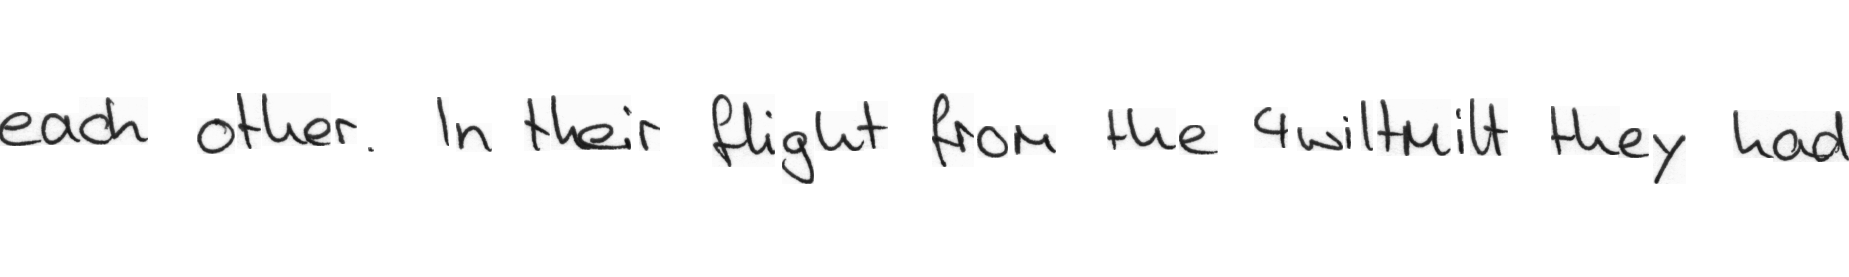 each other. In their flight from the 4wiltmilt they had